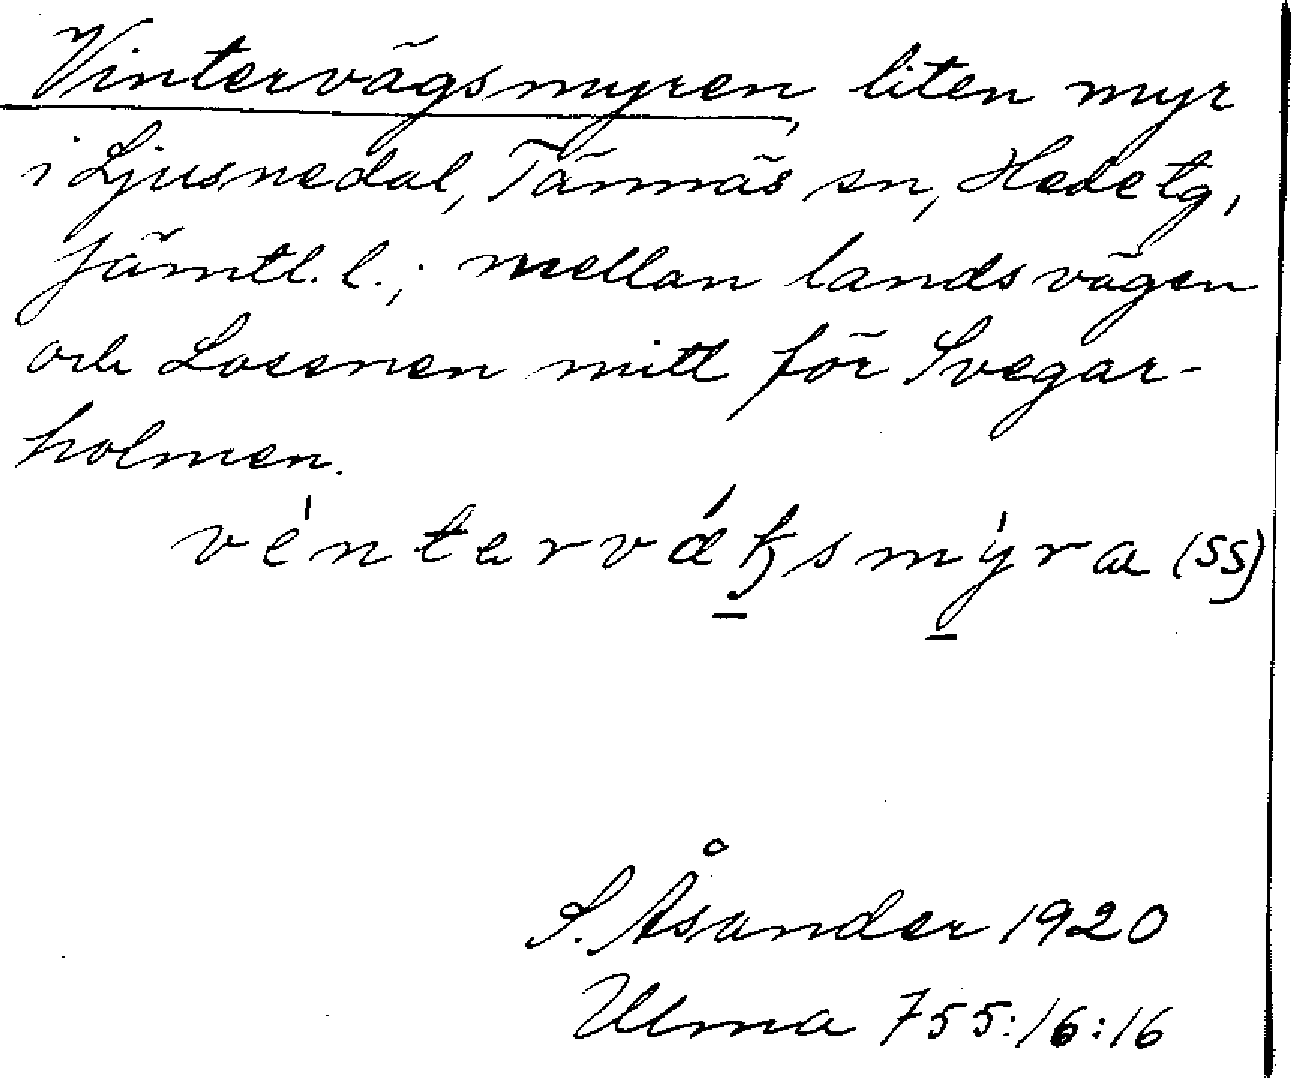 Vintervägsmyren, liten myr
i Ljusnedal, Tännäs sn, Hede tg,
Jämtl. l.; mellan landsvägen
och Lossnen mitt för Svegar-
holmen.
véntervǽksmýra (SS)
S. Åsander 1920
Ulma 755:16:16